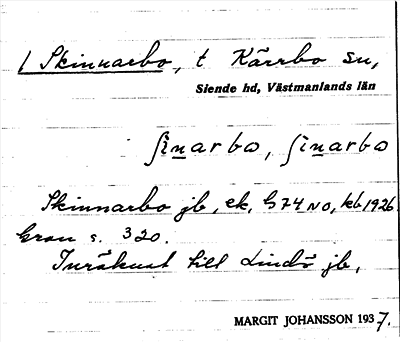 / Skinnarbo, t Kärrbo sn,
Siende hd, Västmanlands län
ʃi̇narbo, ʃinarbo
Skinnarbo jb, ek, G 74 NO, kb 1926.
Gran s. 320.
Inräknat till Lindö jb,
MARGIT JOHANSSON 1937.